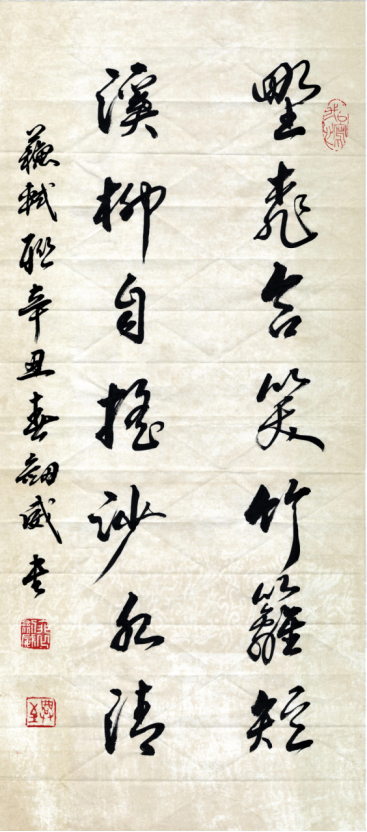 野桃含笑竹籬短
溪柳自搖沙水清
蘇軾联辛丑春翎威书